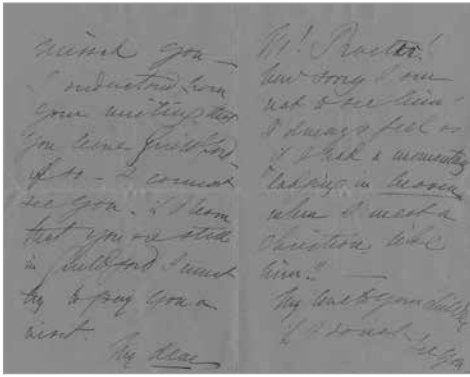 missed you —
I understand from
your writing that
you leave Guilford.
If so — I cannot
see you. If I learn
that you are still
in Guilford I must
try to pay you a
visit.
My dear
Mr! Procter!
how sorry I am
not to see him!
I always feel as
if I had a momentary
landing in heaven
when I meet a
Christian like
him." —
My love to your
if I do not
see you